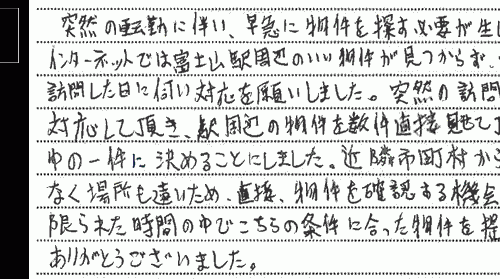 突然の転勤に伴い、早急に物件を探す必要が生
インターネットでは富士山駅周辺のいい物件が見つからず、
訪問した日に伺い対応を願いしました。突然の訪問
対応して頂き、駅周辺の物件を数件直接見せて
中の一件に決めることにしました。近隣市町村から
なく場所も遠いため、直接、物件を確認する機会
限られた時間の中でこちらの条件に合った物件を探
ありがとうございました。